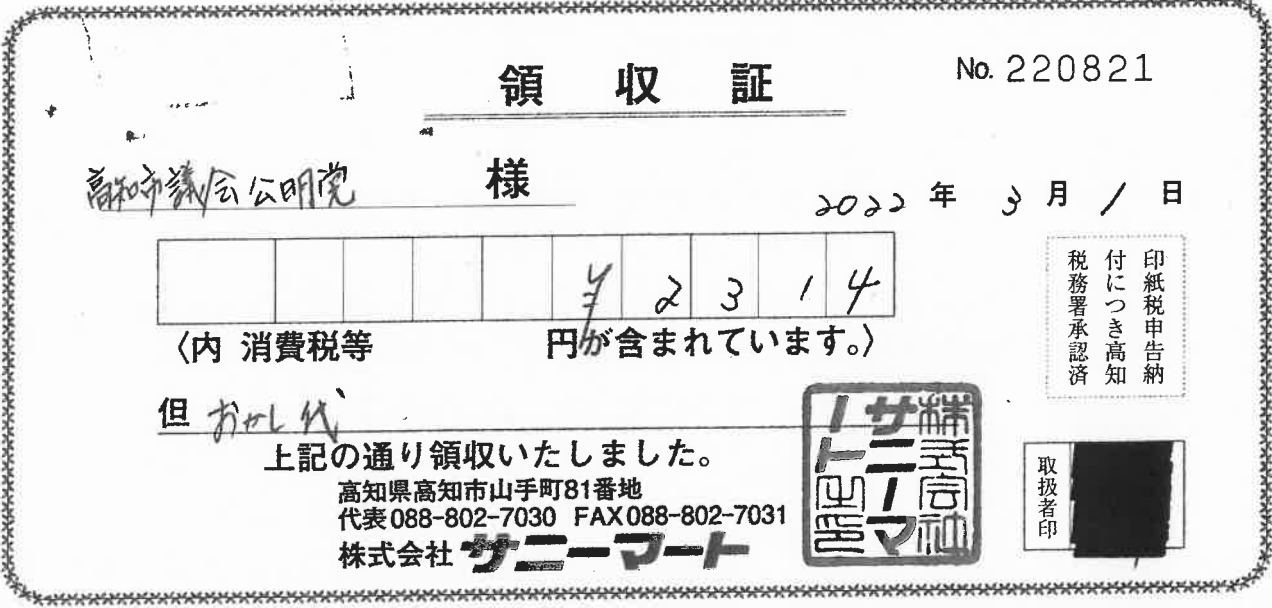 領収証
No. 220821
高知市議会公明党 様
2022 年 3 月 1 日
¥2314
〈内 消費税等 円が含まれています。〉
印紙税申告納
付につき高知
税務署承認済
但 おかし代
上記の通り領収いたしました。
高知県高知市山手町81番地
代表088-802-7030 FAX088-802-7031
株式会社 サニーマート
株式会社
サニーマ
ート之印
取扱者印